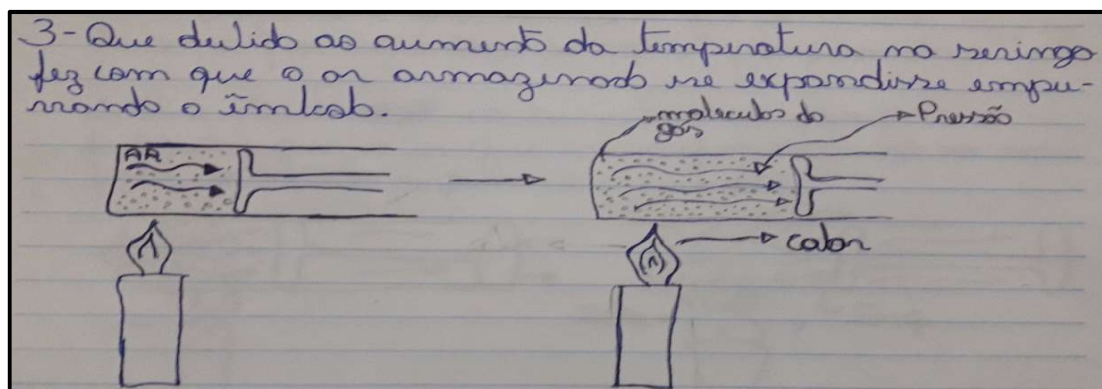 3- Que devido ao aumento da temperatura na seringa
fez com que o ar armazenado se expandisse empu-
rrando o êmbolo.
moleculas do
gás
Pressão
AR
calor